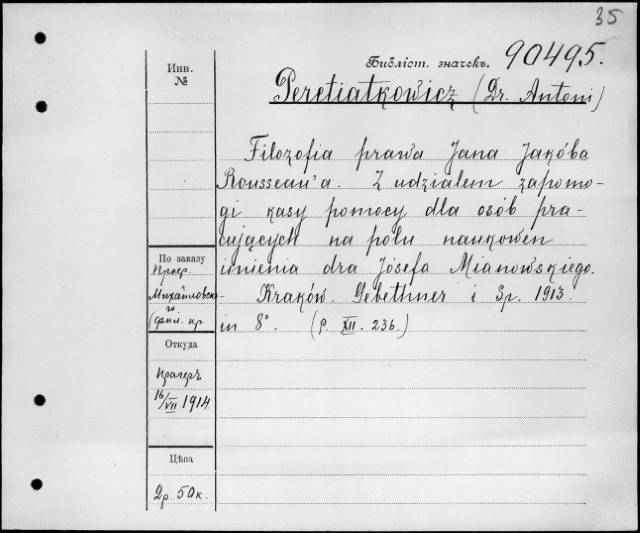 35
Библіот. значекъ. 90495.
Peretiatkowicz (Dr. Antoni)
Инв.
№
Filozofia prawa Jana Jakóba
Rousseau'a. Z udziałem zapomo-
gi kasy pomocy dla osób pra-
cujących na polu naukowem
imienia dra Józefa Mianowskiego.
Kraków. Gebethner i Sp. 1913.
in 8°. (p. XII. 236.)
По заказу
Проф.
Михайловска-
го
Откуда
16/VII 1914
Цѣна
2р. 50к.